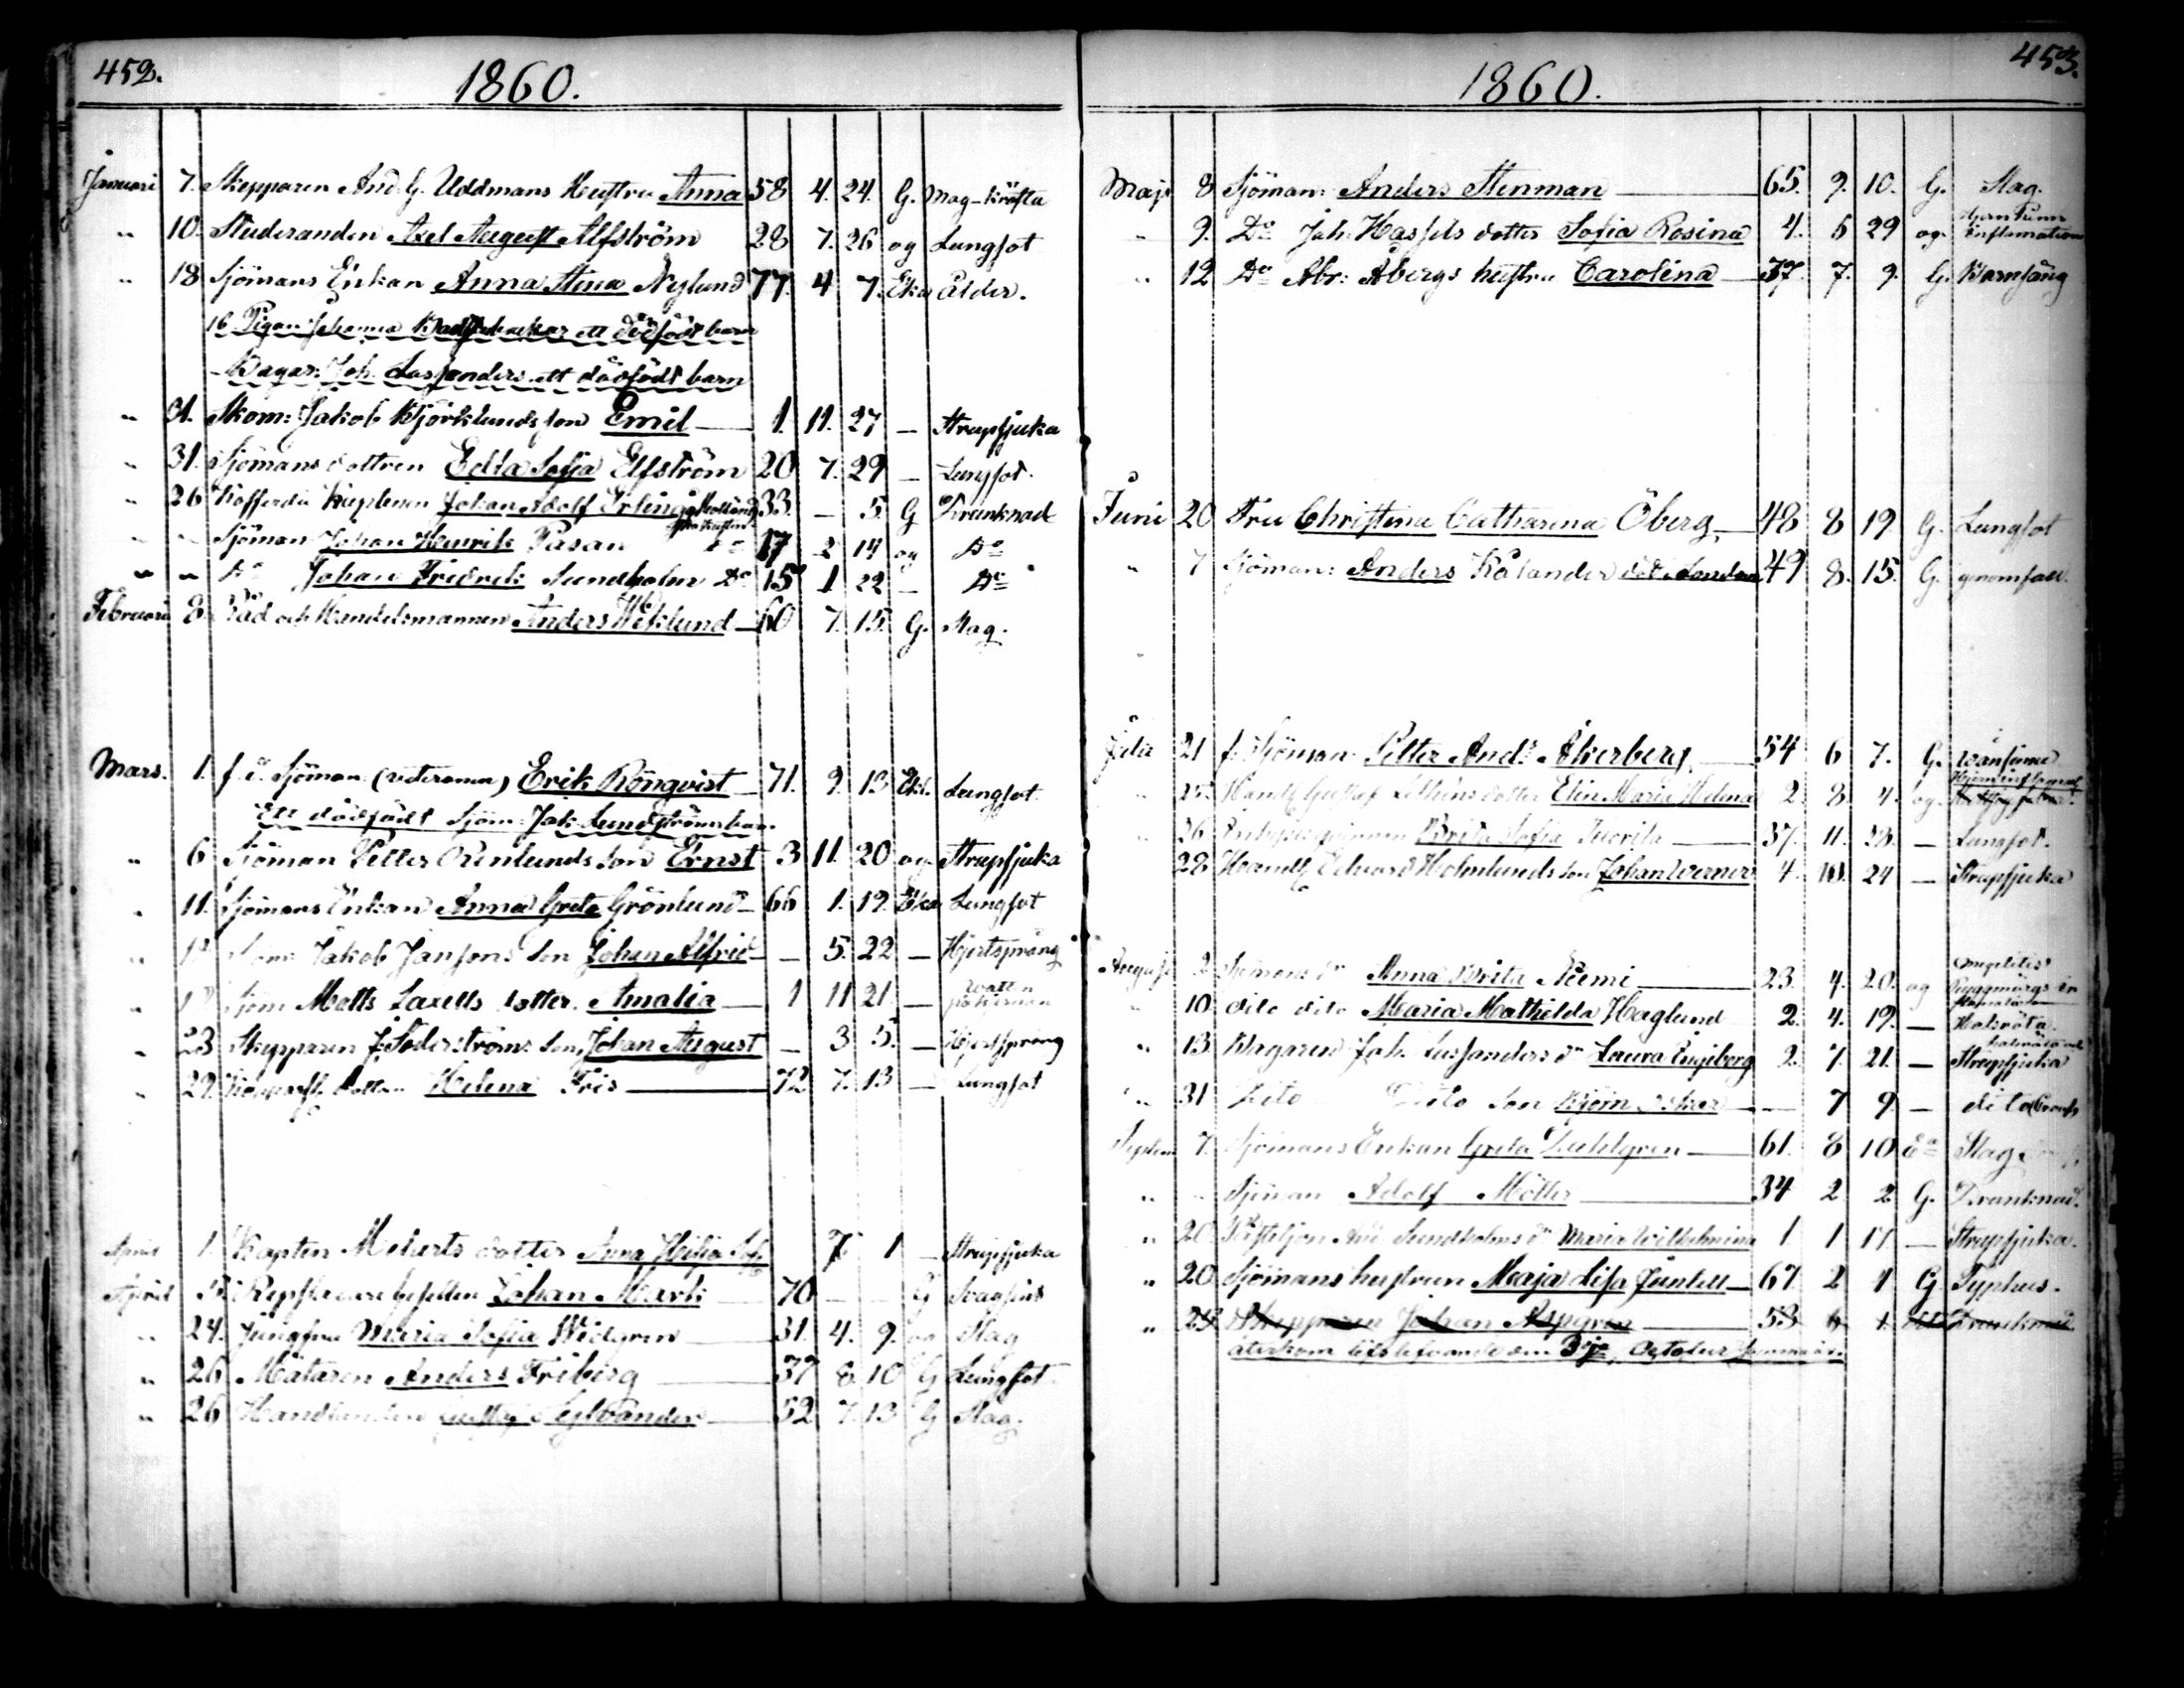 452.
1860.
Januari 7. Skepparen And. G. Uddmans Hustru Anna 58 4. 24. G. Mag-kräfta
" 10. Studeranden Axel August Alfström 28 7. 26 og Lungsot
" 18 Sjömans Enkan Anna Stina Nylund 77. 4 7. Eka Ålder.
16 Pigan Johanna ett dödfödt barn
Bagar: Joh. Lassanders ett dödfödt barn
" 21. Skom: Jakob Björklunds son Emil 1. 11. 27 — Strupsjuka
" 31. Sjömans dottren Edla Sofia Elfström 20 7. 29 — Lungsot.
" 26 Kofferdie Kaptenen Johan Adolf Erling på Hollands 33. — 5. G Drunknad
" " Sjöman Johan Henrik Pasan Do 17 2 14 og Do
" " Do Johan Fredrik Sundholm Do 15 1 22 — Do
Februari 8 Råd och Handelsmannen Anders Wiklund 60 7. 15. G. Slag.
Mars. 1. f. d. Sjöman (veteranen) Erik Rönqvist 71. 9. 13 Ekl. Lungsot.
Ett dödfödt Sjöm: Jak. Lundströms barn
" 6 Sjöman Petter Orenlunds son Ernst 3 11. 20 og Strupsjuka
" 11. Sjömans Enkan Anna Greta Grönlund 66 1. 19. Eka Lungsot
" Jakob Jansons son Johan Alfrid — 5. 22 — Hjertsprång
" Sjöm Matts Laxells dotter Amalia 1 11 21. — Watten
" 23 Skepparen J. Söderströms son Johan August — 3 5. — Hjertsprång
" 29. dotter Helena Fris 72 7. 13 — Lungsot
April 1. Kapten Meharts dotter Anna 7. 1 — Strupsjuka
April Repslagare Gesällen Johan Mark 70 — — G
" 24. Jungfru Maria Sofia Widgren 31. 4. 9. og Slag
" 26 Mätaren Anders Friberg 37 8 10 G Lungsot.
" 26 Handlanden Gustaf Sylvander 52 7. 13 G Slag.
453.
1860.
Maji 8 Sjöman: Anders Stenman 65. 9. 10. G. Slag.
" 9. Do Joh. Hassels dotter Sofia Rosina 4. 5 29 og. Inflamation
" 12 Do Abr: Åbergs hustru Carolina 37. 7. 9. G. Barnsäng
Juni 20 Fru Christina Catharina Öberg 48 8 19. G. Lungsot
" 7 Sjöman: Anders Kålander död i London 49 8. 15. G. genomfall.
Julii 21 f. Sjöman Petter And: Åkerberg 54 6 7. G. Wansinne
" 25. Handl. Gustaf dotter Elin Maria Helena 2. 8. 4. og. Hjerninflamat
" 26 Brita Sofia 37. 11. 23. — Lungsot.
28 Handl. Edvard Holmlunds son Johan Werner 4. 10. 24 — Strupsjuka
Augusti 2 Sjömans dr Anna Brita Niemi 23. 4. 20. og Ryggmärgs
" 10. dito dito Maria Mathilda Haglund 2. 4. 19. — Halsröta.
" 13 Bagaren Joh. Lassanders dr Laura Engeborg 2. 7. 21. — Strupsjuka
" 31 Dito Dito son Björn Oskar — 7 9. — dito
Septem 7. Sjömans Enkan Greta Dahlgren 61. 8 10 Slag
" " Sjöman Adolf Möller 34 2 2 G. Drunknad.
" 20. And. Sundholms dr Maria Wilhelmina 1 1 17 — Strupsjuka.
" 20 Sjömans hustrun Maja Lisa Junell 67 2 1 G Typhus.
" 23 Skepparen Johan Aspgren 53 6 1 Drunknad
återkom lifslefvande den 3dje October samma år.